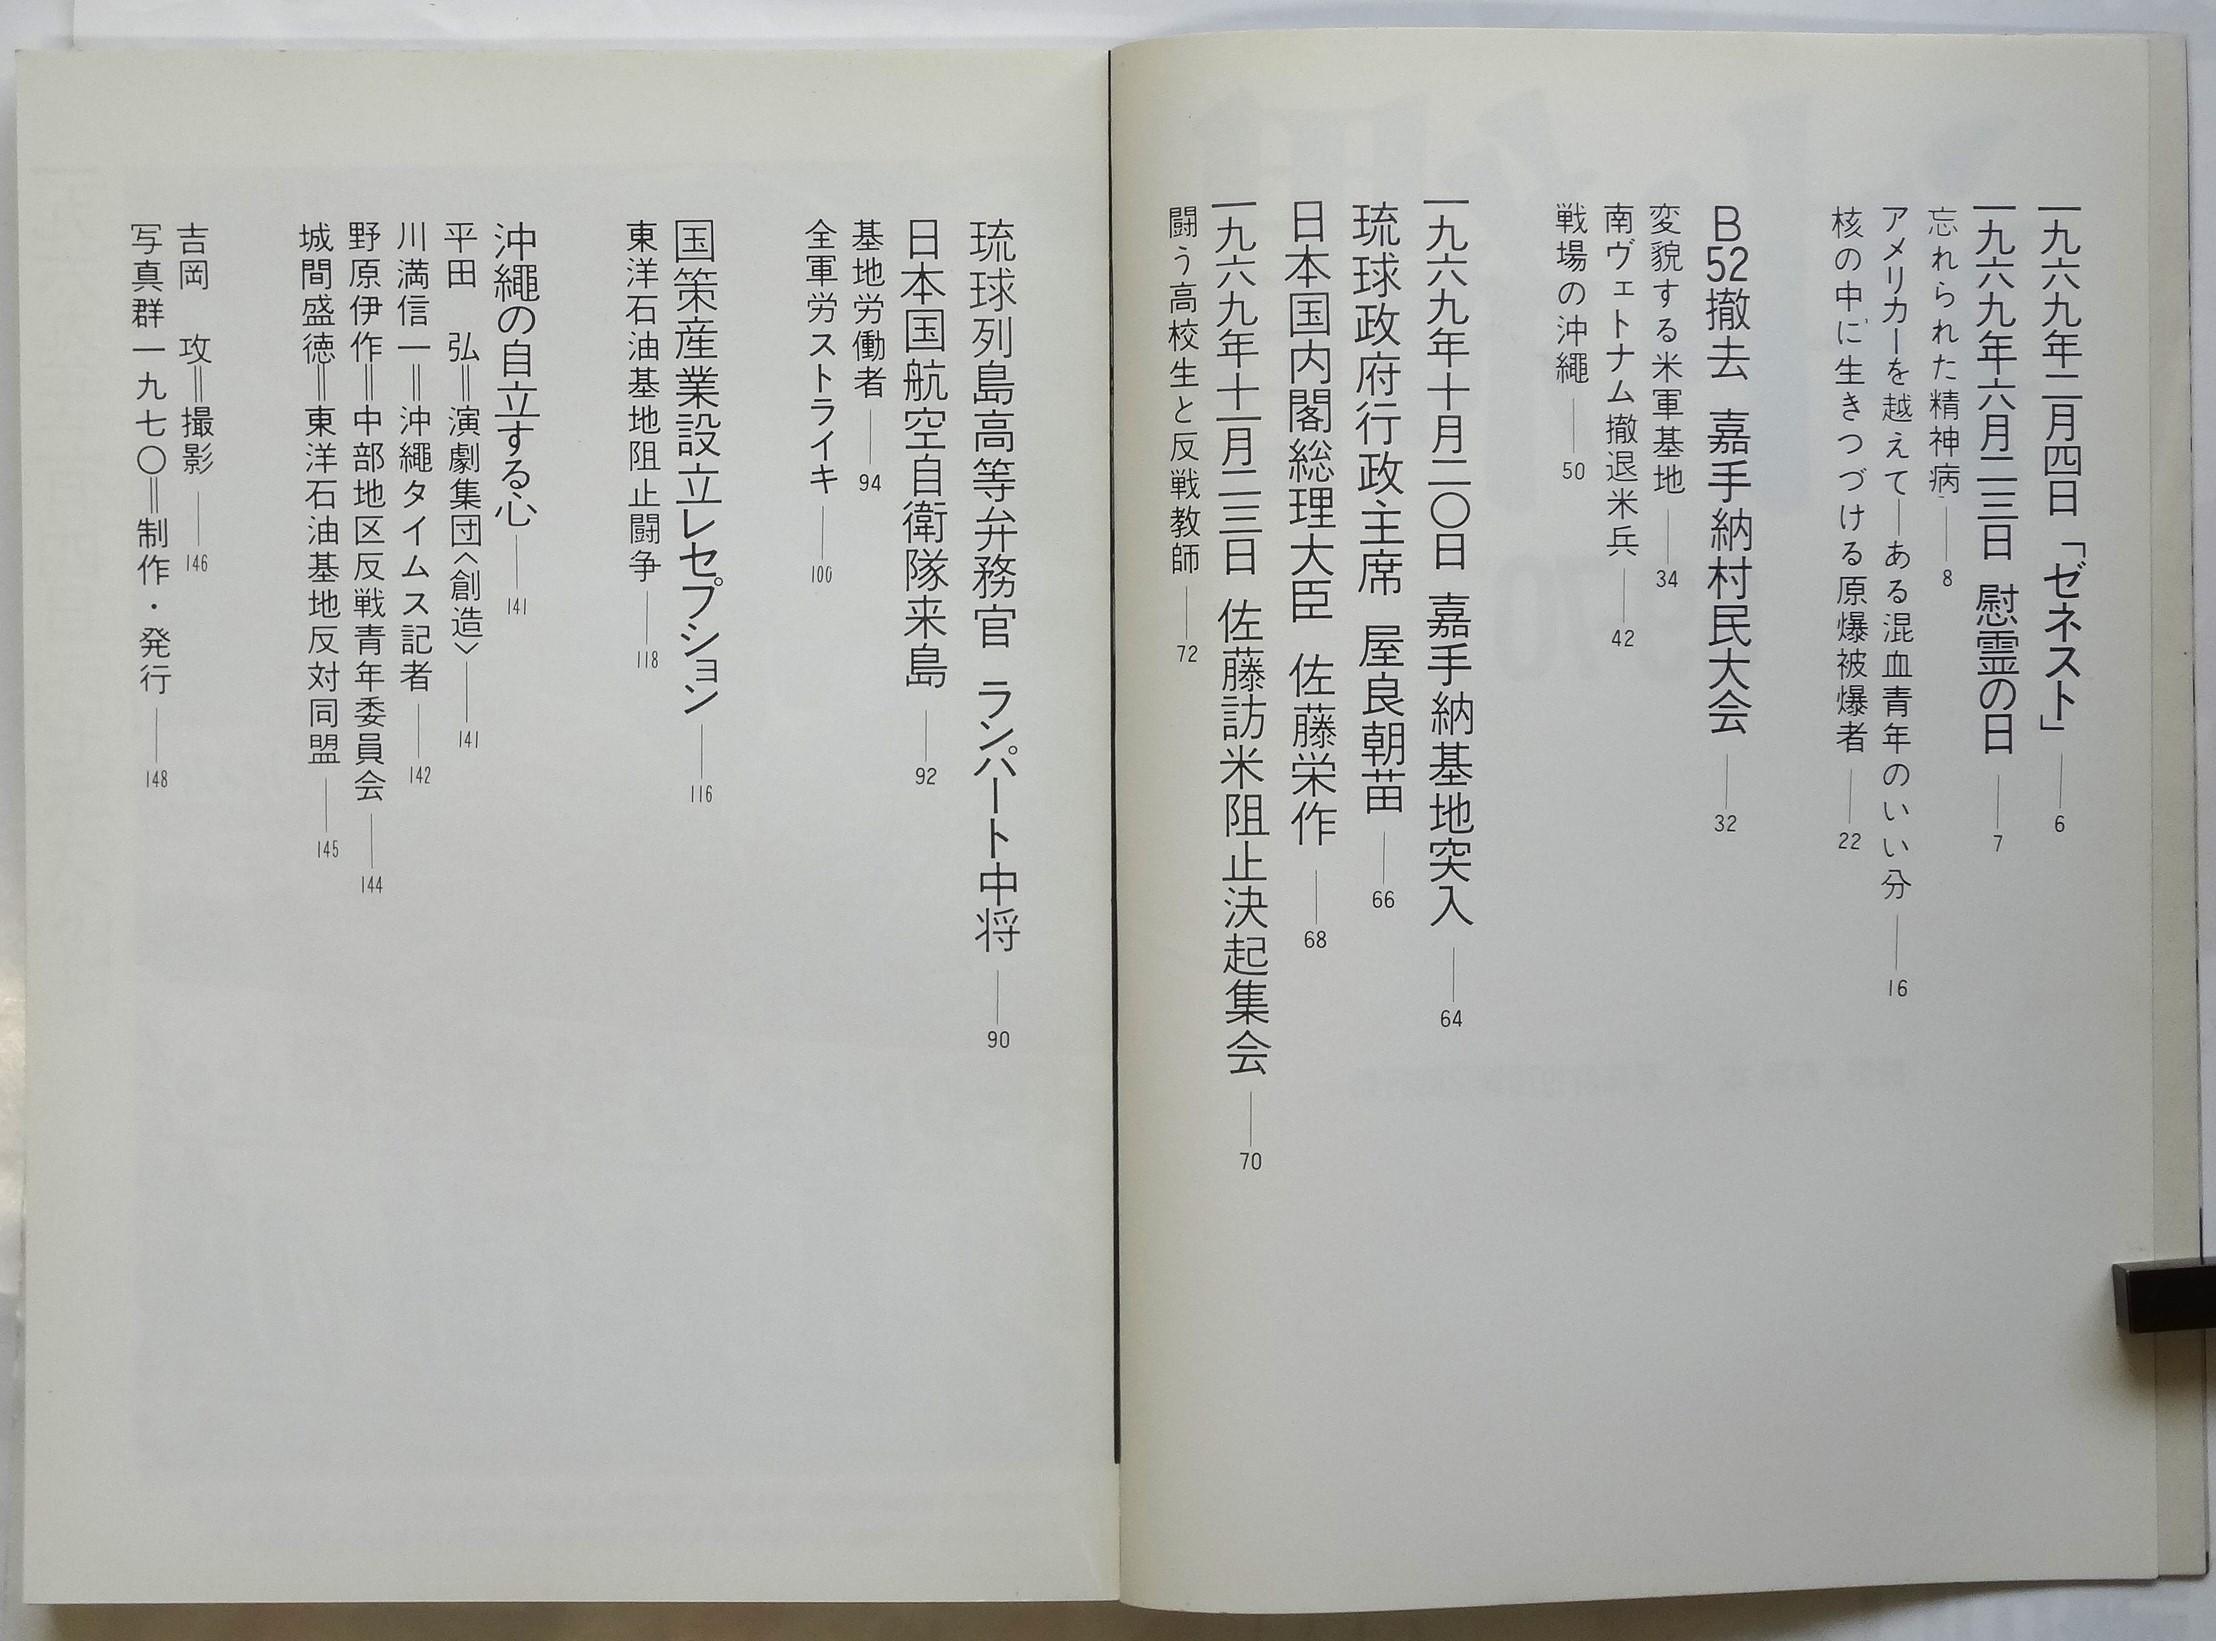 一九六九年二月四日「ゼネスト」——6
一九六九年六月二三日 慰霊の日——7
忘れられた精神病——8
アメリカーを越えて—ある混血青年のいい分——16
核の中に生きつづける原爆被爆者——22
B52撤去 嘉手納村民大会——32
変貌する米軍基地——34
南ヴェトナム撤退米兵——42
戦場の沖繩——50
一九六九年十月二〇日 嘉手納基地突入——64
琉球政府行政主席 屋良朝苗——66
日本国内閣総理大臣 佐藤栄作——68
一九六九年十一月一三日 佐藤訪米阻止決起集会——70
闘う高校生と反戦教師——72
琉球列島高等弁務官 ランパート中将——90
日本国航空自衛隊来島——92
基地労働者——94
全軍労ストライキ——100
国策産業設立レセプション——116
東洋石油基地阻止闘争——118
沖繩の自立する心——141
平田 弘＝演劇集団〈創造〉——141
川満信一＝沖繩タイムス記者——142
野原伊作＝中部地区反戦青年委員会——144
城間盛徳＝東洋石油基地反対同盟——145
吉岡 攻＝撮影——146
写真群一九七〇＝制作・発行——148